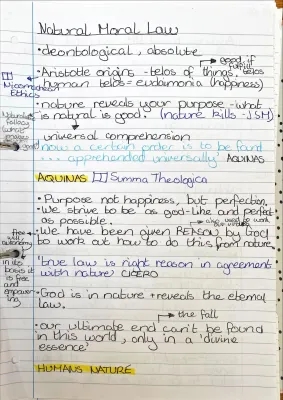 Natural Moral Law
• deontological, absolute
good if
fulfill
telos
• Aristotle origins - telos of things.
human telos = eudaimonia (happiness)
Nicomachean
Ethics
• nature reveals your purpose - what
is natural is good. (nature kills - JSM)
Naturalistic
fallacy
good
universal comprehension
now a certain order is to be found
... apprehended universally' AQUINAS
AQUINAS Summa Theologica
• Purpose not happiness, but perfection.
We strive to be as god-like and perfect
as possible.
also used to work
out virtues
• We have been given REASON by God
to work out how to do this from nature.
free will
autonomy
in its
basis it
is free
and
empower
ing
'true law is right reason in agreement
with nature' CICERO
• God is in nature + reveals the eternal
law.
the fall
• our ultimate end can't be found
in this world, only in a 'divine
essence'
HUMANS NATURE